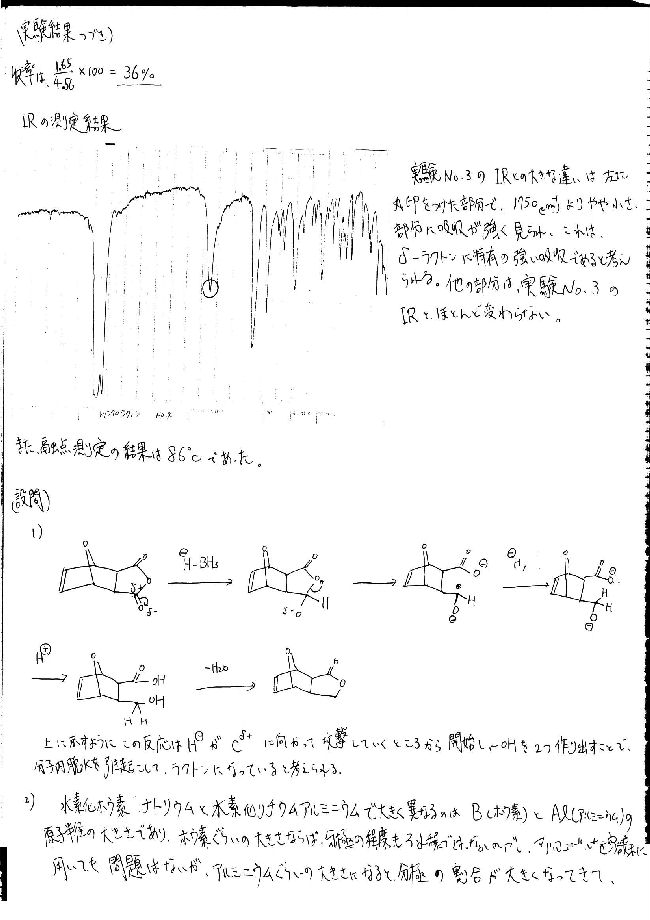 (実験結果つづき)
収率は、1.65/4.56 ×100 = 36%
IRの測定結果
実験No.3のIRとの大きな違いは左に
丸印をつけた部分で、1750cm⁻¹よりやや小さい
部分に吸収が強く見られ、これは、
δ-ラクトンに特有の強い吸収であると考え
られる。他の部分は、実験No.3の
IRと、ほとんど変わらない。
また、融点測定の結果は86℃であった。
(設問)
1)
H⁻-BH₃
H⁺
-H₂O
上に示すようにこの反応はH⁻がC^δ+に向かって攻撃していくところから開始し、-OHを2つ作り出すことで、
分子内脱水を引き起こして、ラクトンになっていると考えられる。
2) 水素化ホウ素ナトリウムと水素化リチウムアルミニウムで大きく異なるのはB(ホウ素)とAl(アルミニウム)の
原子半径の大きさであり、ホウ素ぐらいの大きさならば、分極の程度も
用いても問題はないが、アルミニウムぐらいの大きさになると、分極の割合が大きくなってきて、